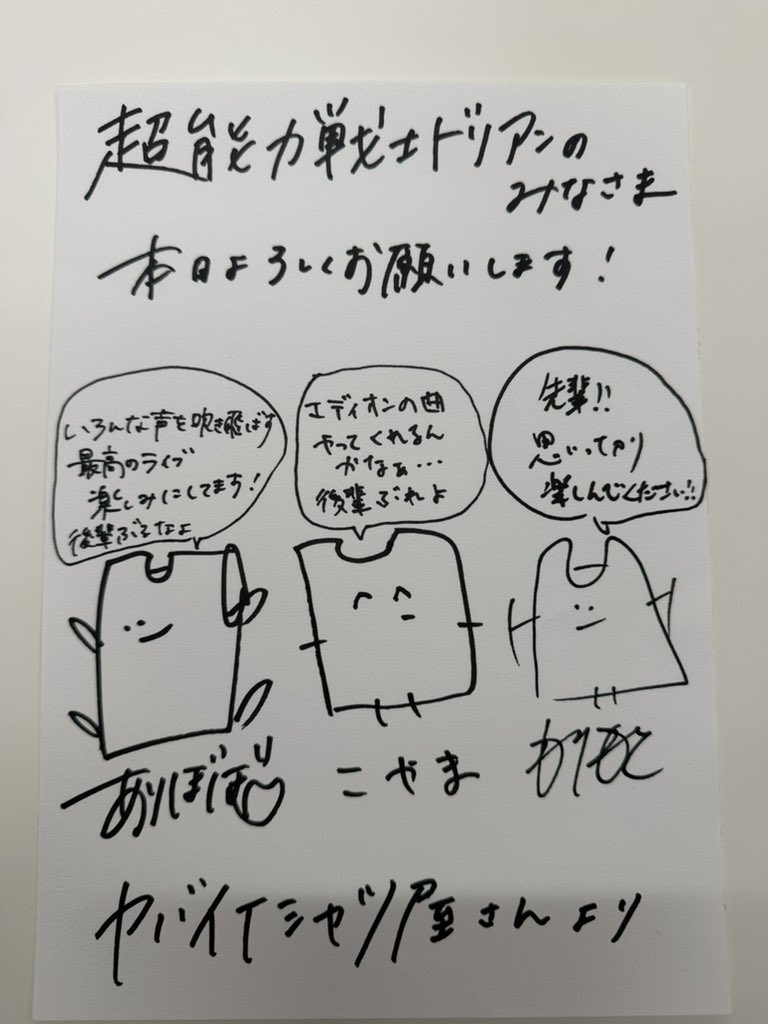 超能力戦士ドリアンの
みなさま
本日よろしくお願いします！
いろんな声を吹き飛ばす
最高のライブ
楽しみにしてます！
後輩ぶるなよ
エディオンの曲
やってくれるん
かなぁ…
後輩ぶれよ
先輩!!
思いっきり
楽しんでください!!
ありぼぼ
こやま
もりもと
ヤバイTシャツ屋さんより